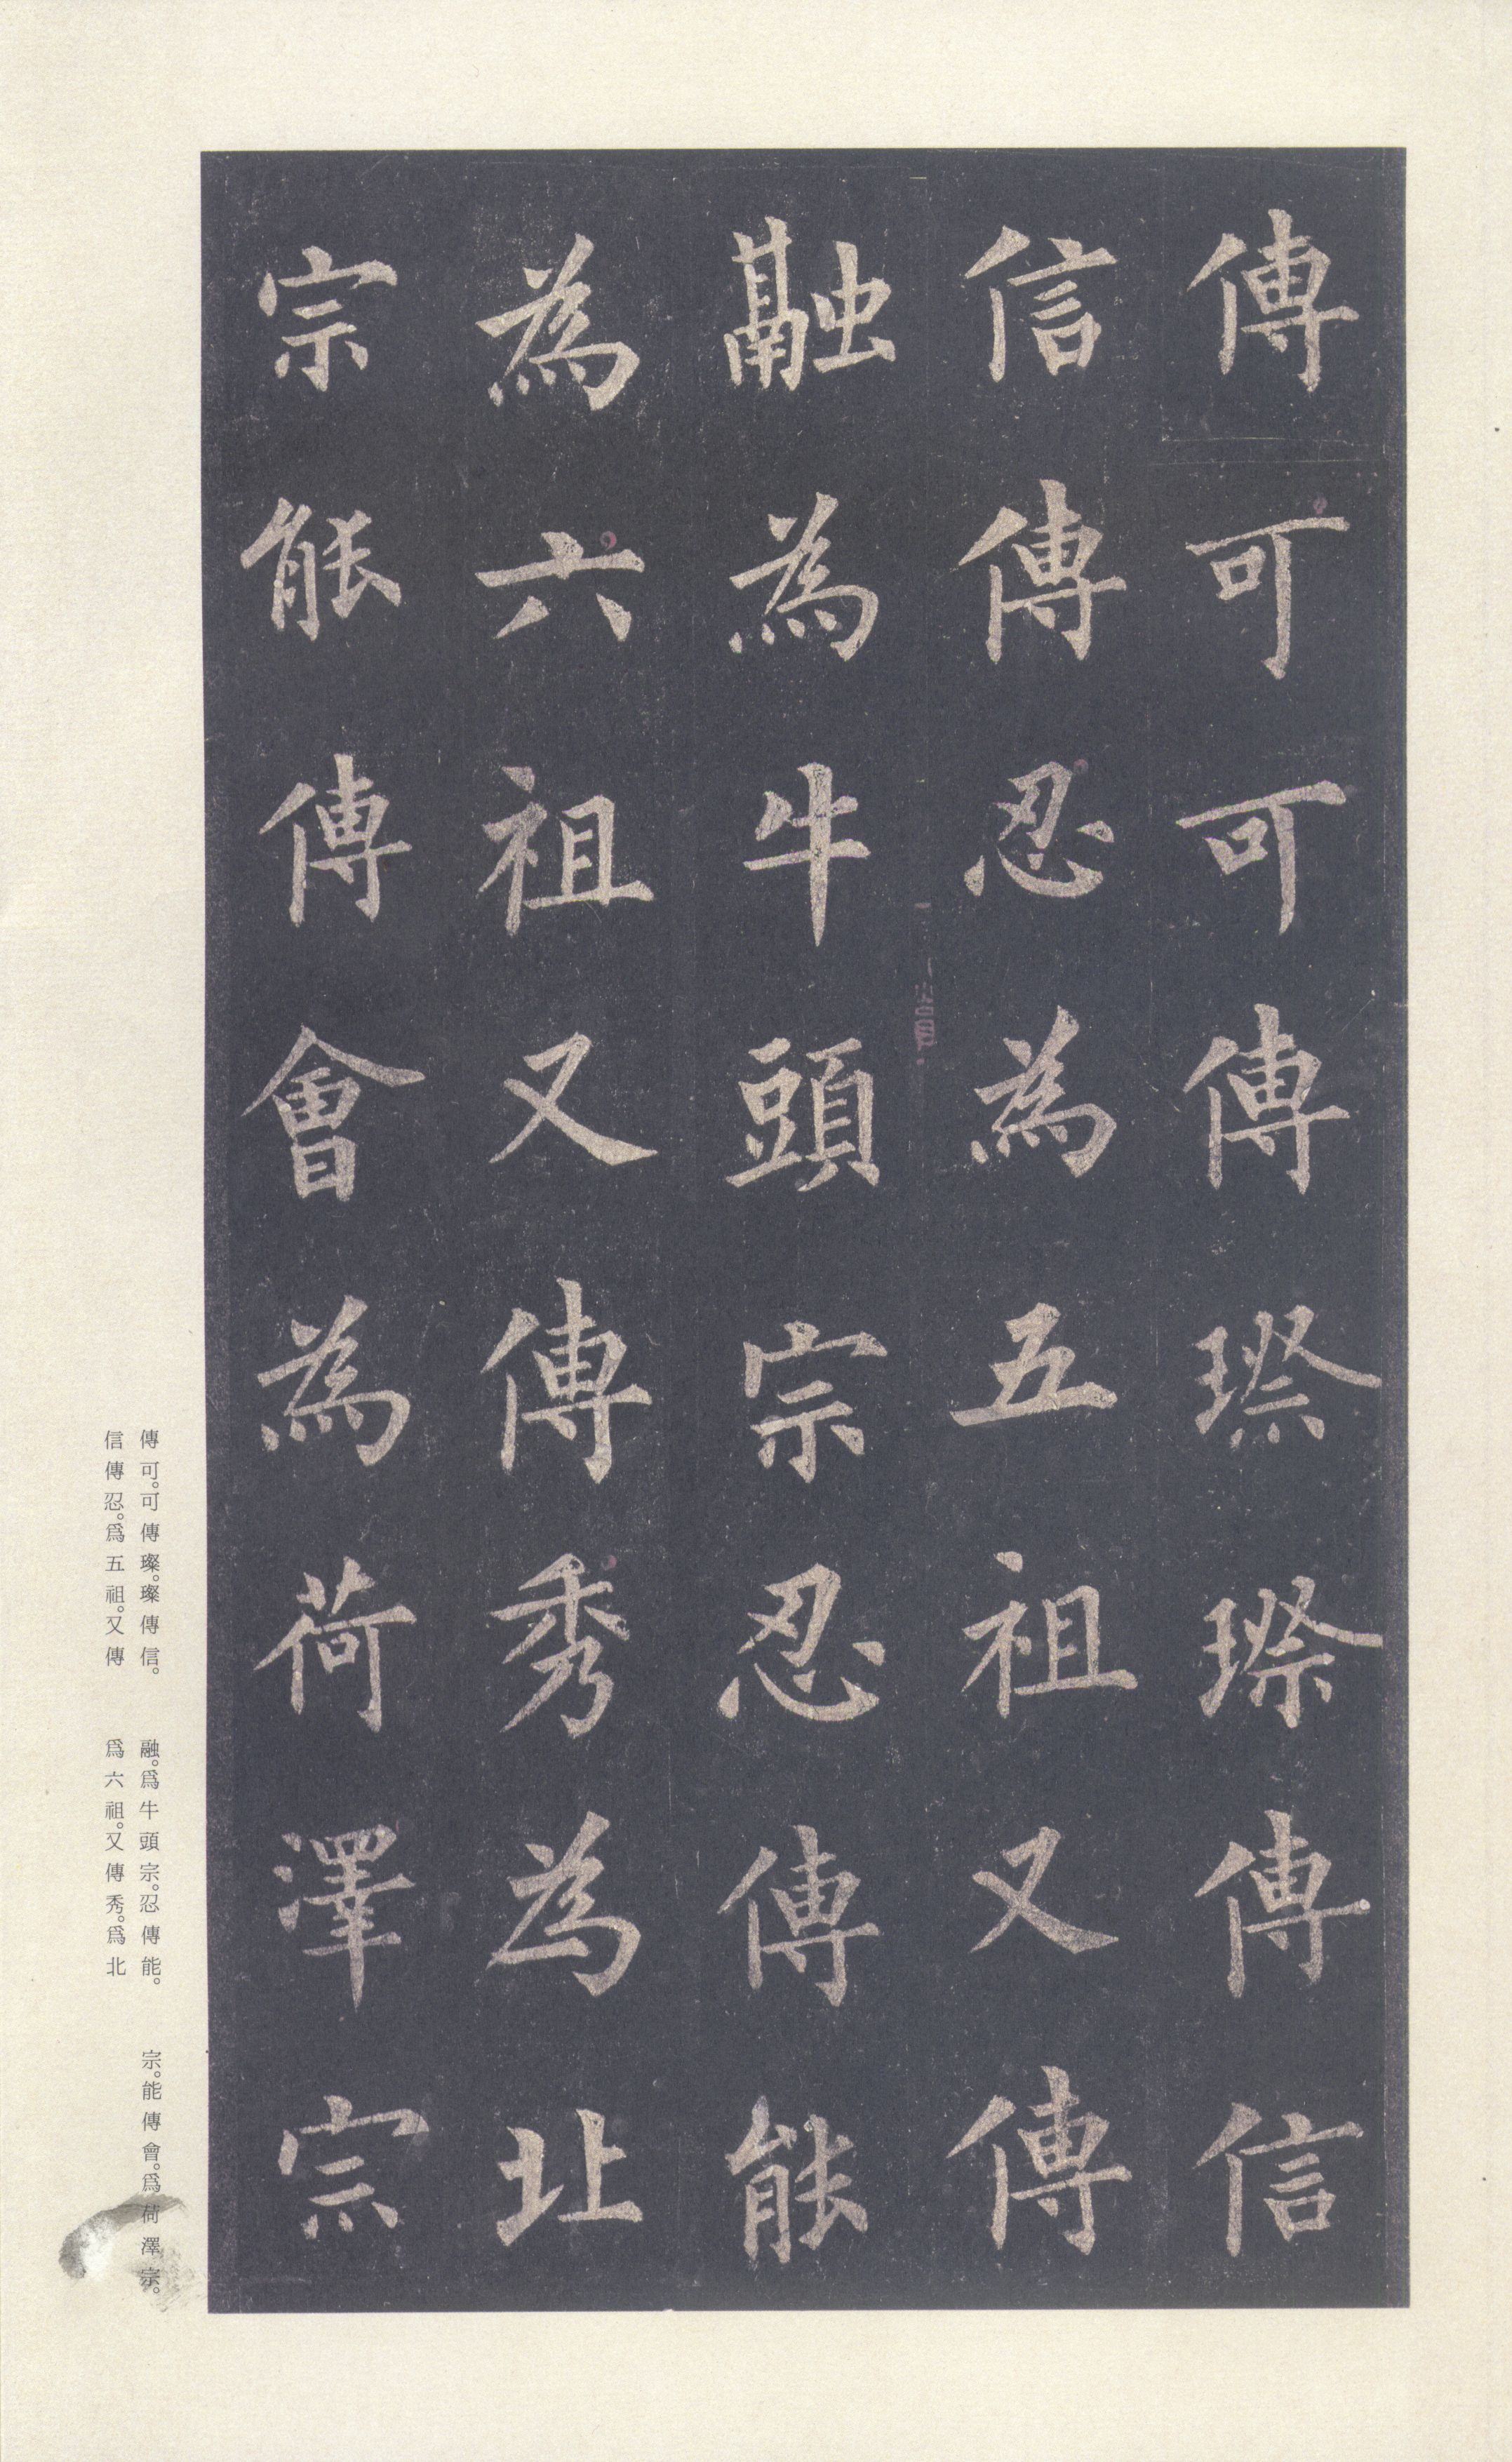 傳可可傳璨璨傳信
信傳忍為五祖又傳
融為牛頭宗忍傳能
為六祖又傳秀為北
宗能傳會為荷澤宗
傳可。可傳璨。璨傳信。
信傳忍。爲五祖。又傳
融。爲牛頭宗。忍傳能。
爲六祖。又傳秀。爲北
宗。能傳會。爲荷澤宗。